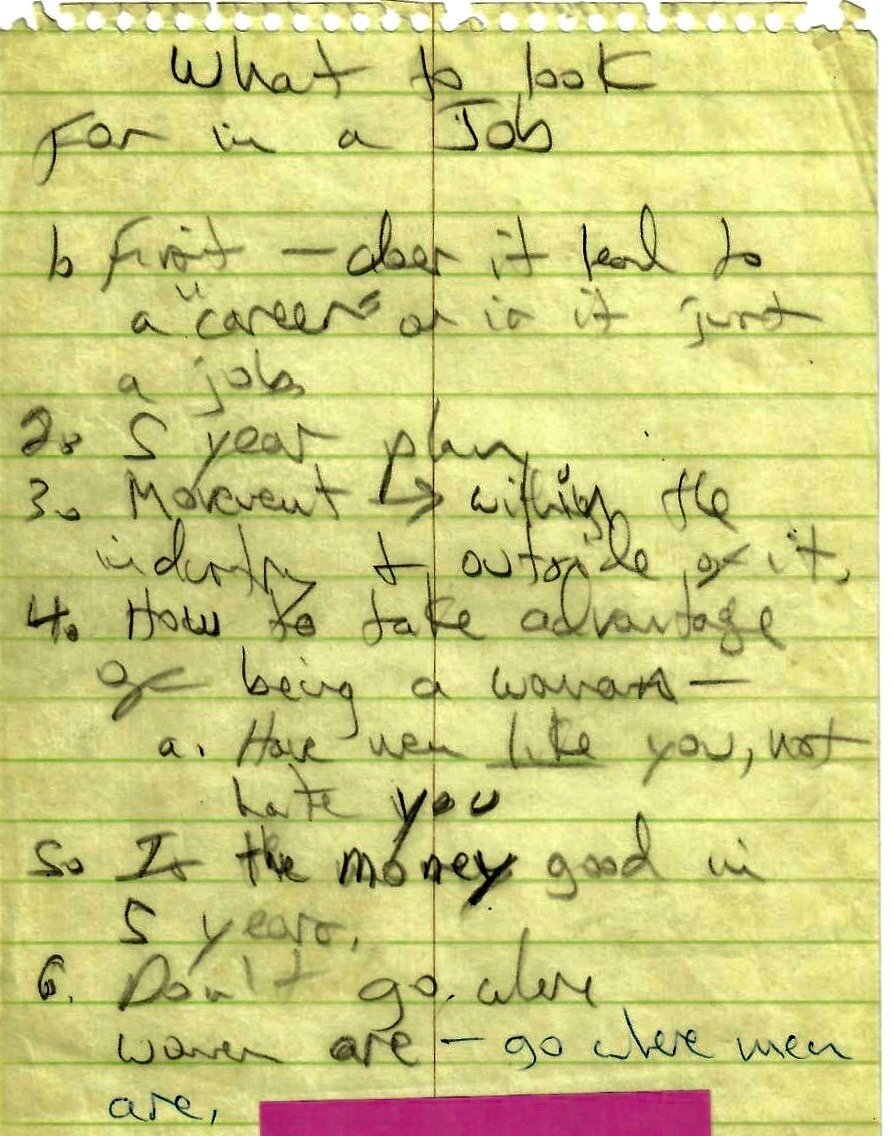 What to look
For in a Job
1. First — does it lead to
a "career" or is it just
a job.
2. 5 year plan
3. Movement → within the
industry + outside of it.
4. How to take advantage
of being a woman —
a. Have men like you, not
hate you
5. Is the money good in
5 years.
6. Don't go where
women are — go where men
are,